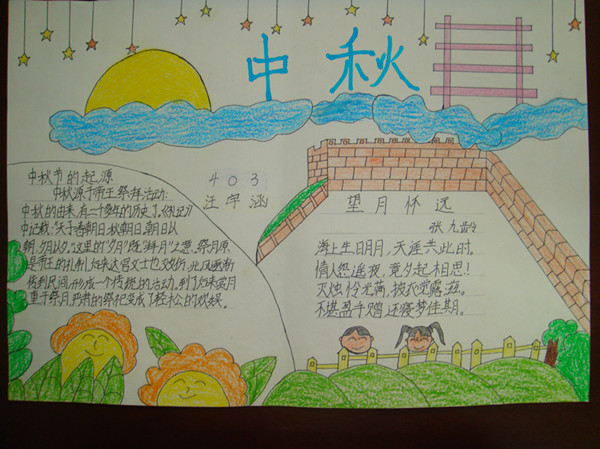 中秋
中秋节的起源
中秋源于帝王祭拜活动:
中秋的由来,有一个多年的历史了。《礼记》
中记载:"天子春朝日,秋朝日,朝日以
朝,夕月以夕。"这里的"夕月"既"拜月"之意。祭月原
是帝王的礼制,如来达官文士也效仿,此风逐渐
传到民间,形成一个传统的活动,到了如来赏月
重于祭月,严肃的祭祀变成了轻松的欢娱。
403
汪宇涵
望月怀远
张九龄
海上生明月,天涯共此时。
情人怨遥夜,竟夕起相思!
灭烛怜光满,披衣觉露滋。
不堪盈手赠,还寝梦佳期。